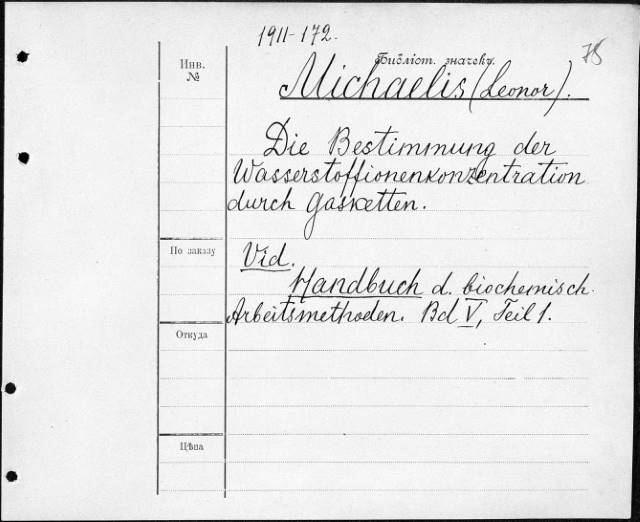 1911-172.
78
Инв.
№
Библіот. значекъ.
Michaelis (Leonor).
Die Bestimmung der
Wasserstoffionenkonzentration
durch Gasketten.
По заказу
Vid.
Handbuch d. biochemisch.
Arbeitsmethoden. Bd V, Teil 1.
Откуда
Цѣна